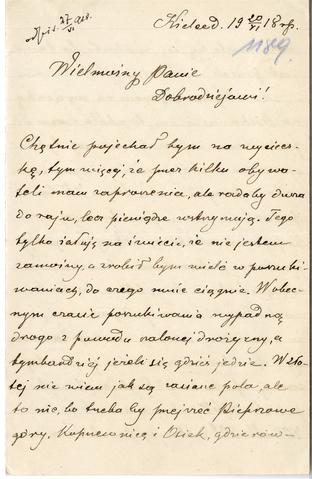 odpis. 27/VI 918.
Kielce d. 19 20/VI 18 r.
1189.
Wielmożny Panie
Dobrodziejami!
Chętnie pojechał bym na wyciecz-
kę, tym więcej, że przez kilku obywa-
teli mam zaproszenia, ale radaby dusza
do raju, lecz pieniądze wstrzymują. Tego
tylko żałuję na świecie, że nie jestem
zamożny, a zrobił bym wiele w poszuki-
waniach, do czego mnie ciągnie. W obec-
nym czasie poszukiwania wypadną
drogo z powodu szalonej drożyzny, a
tymbardziej jeżeli się gdzieś jedzie. W Zło-
tej nie wiem jak są zasiane pola, ale
to nic, bo trzeba by przejrzeć Pieprzowe
góry. Koprzewnicę i Osiek, gdzie rów-